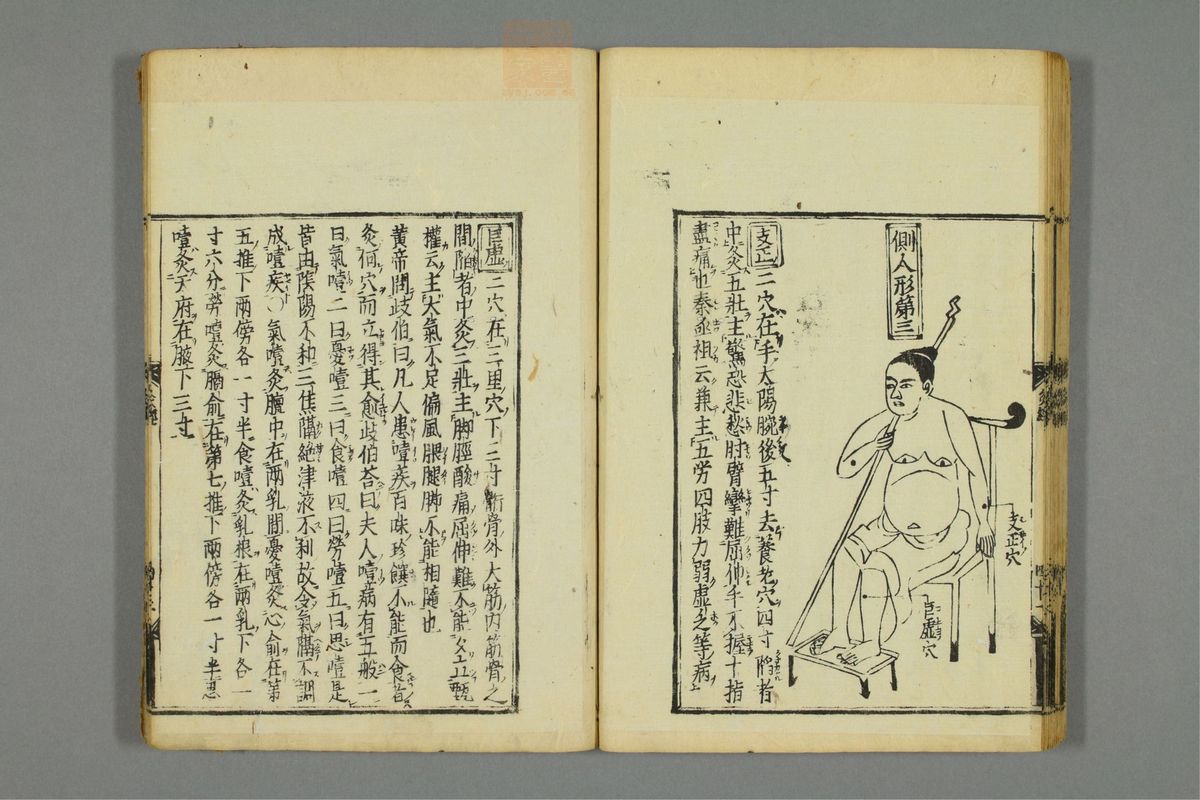 側人形第三
支正穴
巨虚穴
支正 二穴在手太陽腕後五寸去養老穴四寸陷者
中灸五壯主驚恐悲愁肘臂攣難屈伸手不握十指
盡痛也秦承祖云兼主五勞四肢力弱虛乏等病
巨虚 二穴在三里穴下三寸䯒骨外大筋内筋骨之
間陷者中灸三壯主脚脛酸痛屈伸難不能久立甄
權云主大氣不足偏風腲腿脚不能相隨也
黄帝問歧伯曰凡人患噎疾百味珍饌不能而食者
灸何穴而立得其愈歧伯荅曰夫人噎病有五般一
曰氣噎二曰憂噎三曰食噎四曰勞噎五曰思噎是
皆由陰陽不和三焦隔絶津液不利故令氣隔不調
成噎疾〇氣噎灸膻中在兩乳間憂噎灸心俞在第
五推下兩傍各一寸半食噎灸乳根在兩乳下各一
寸六分勞噎灸膈俞在第七推下兩傍各一寸半思
噎灸天府在腋下三寸